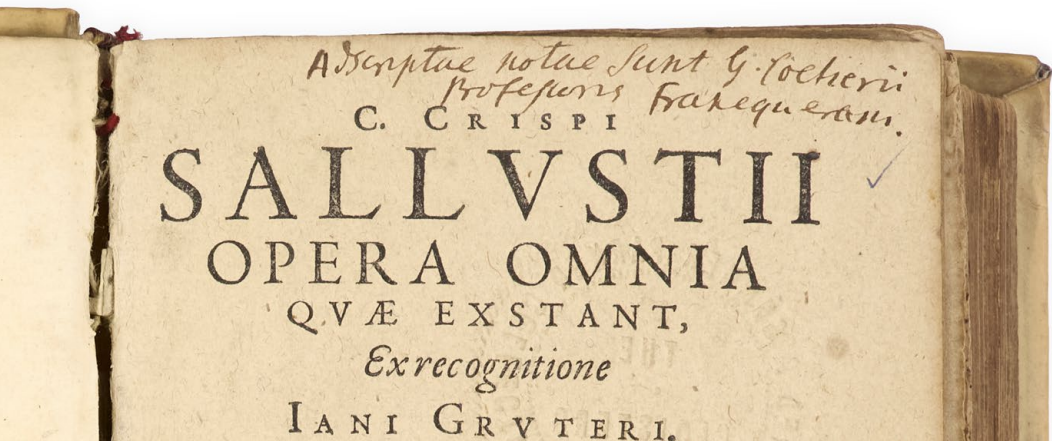 Adscriptae notae sunt G. Coetierii
Professoris Franequerani.
C. CRISPI
SALLVSTII
OPERA OMNIA
QVÆ EXSTANT,
Ex recognitione
IANI GRVTERI.